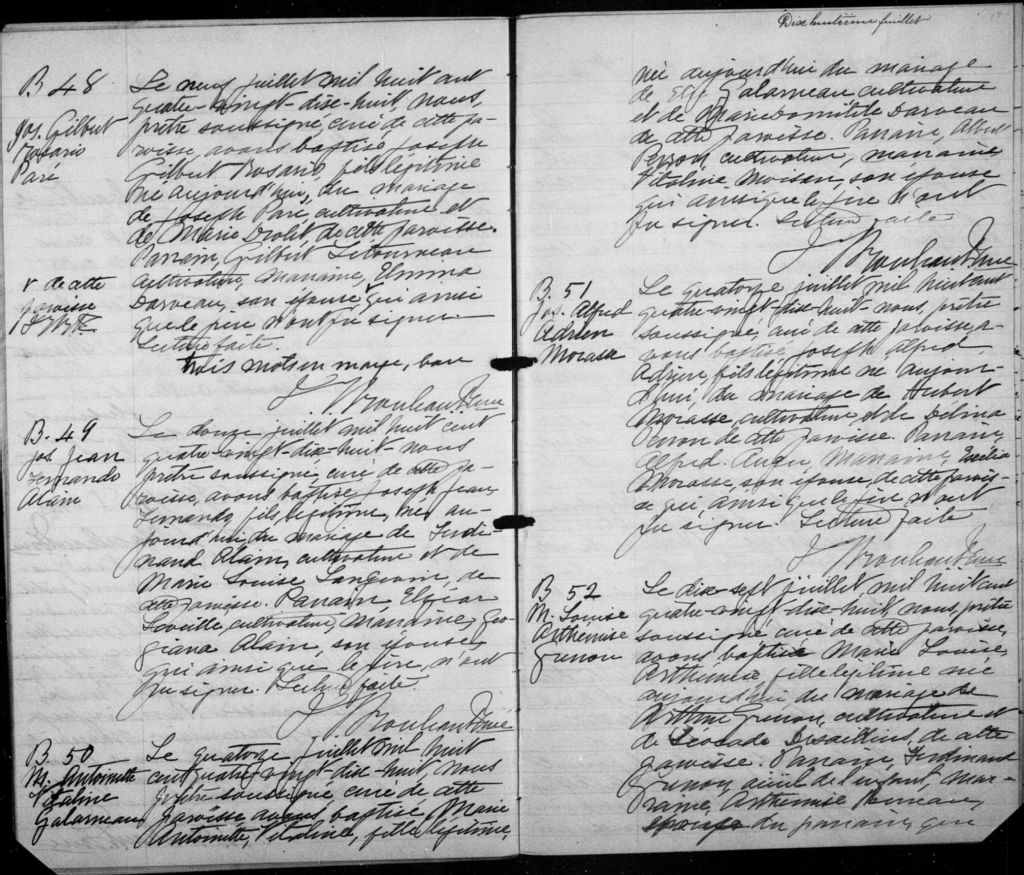 B 48
Jos. Gilbert
Rosario
Paré
Le neuf juillet mil huit cent
quatre-vingt-dix-huit, nous,
prêtre soussigné curé de cette pa-
roisse, avons baptisé Joseph
Gilbert Rosario, fils légitime
né aujourd'hui, du mariage
de Joseph Paré, cultivateur et
de Marie Drolet, de cette paroisse.
Parrain, Gilbert Létourneau
cultivateur, marraine, Emma
Darveau, son épouse, v qui ainsi
que le père n'ont pu signer.
Lecture faite.
v de cette
paroisse
trois mots en marge, bon
J Ptre
B. 49
Jos. Jean
Fernando
Alain
Le douze juillet mil huit cent
quatre-vingt-dix-huit nous
prêtre soussigné curé de cette pa-
roisse, avons baptisé Joseph Jean
Fernando, fils légitime, né au-
jourd'hui, du mariage de Ferdi-
nand Alain, cultivateur et de
Marie Louise Langevin, de
cette paroisse. Parrain, Elzéar
cultivateur, marraine, Geor
giana Alain, son épouse,
qui ainsi que le père, n'ont
pu signer. Lecture faite
J Ptre
B. 50
M. Antoinette
Vitaline
Galarneau
Le quatorze juillet mil huit
cent quatre-vingt-dix-huit, nous
prêtre soussigné curé de cette
paroisse, avons baptisé Marie
Antoinette, Vitaline, fille légitime,
Dix huitième feuillet
née aujourd'hui du mariage
de Galarneau cultivateur
et de Marie Domitilde Darveau
de cette paroisse. Parrain, Albert
Perron, cultivateur, marraine
Vitaline Moisan, son épouse
qui ainsi que le père n'ont
pu signer. Lecture faite
J Ptre
B. 51
Jos. Alfred
Adrien
Morasse
Le quatorze juillet mil huit cent
quatre-vingt-dix-huit-nous, prêtre
soussigné, curé de cette paroisse a-
vons baptisé Joseph Alfred
Adrien, fils légitime né aujour-
d'hui, du mariage de Hubert
Morasse, cultivateur et de Delina
Perron de cette paroisse. Parrain,
Alfred marraine,
Morasse, son épouse, de cette parois-
se qui, ainsi que le père n'ont
pu signer. Lecture faite
J Ptre
B 52
M. Louise
Arthemise
Grenon
Le dix-sept juillet, mil huit cent
quatre-vingt-dix-huit, nous, prêtre
soussigné curé de cette paroisse,
avons baptisé Marie Louise,
Arthemise, fille légitime née
aujourd'hui du mariage de
Arthur Grenon, cultivateur et
de Léocadie de cette
paroisse. Parrain, Ferdinand
Grenon, aïeul de l'enfant, mar-
raine, Arthemise
épouse du parrain, qui